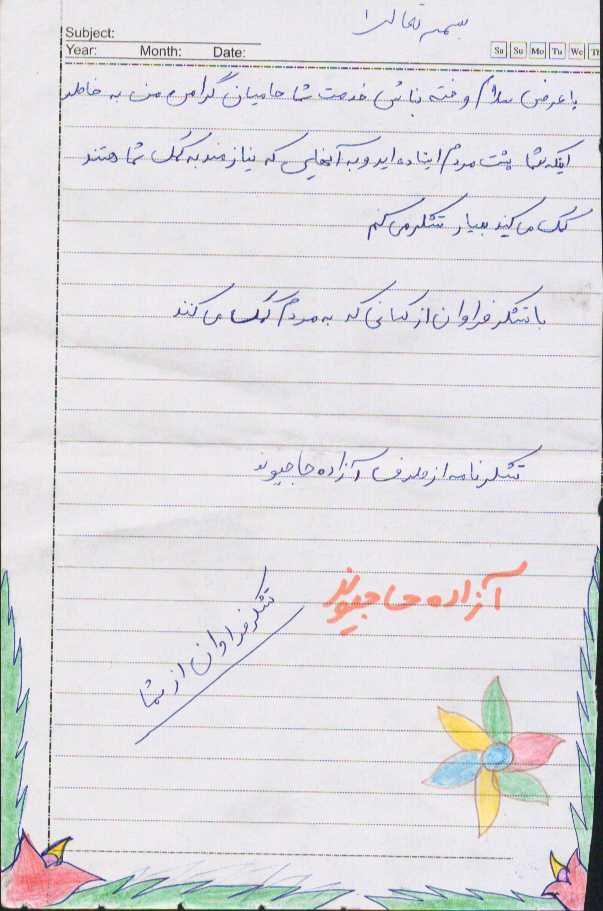 بسمه تعالی
Subject:
Year: Month: Date:
Sa Su Mo Tu We Th
با عرض سلام و خسته نباشی خدمت شما حامیان گرامی من به خاطر
اینکه شما پشت مردم ایستاده اید و به آنهایی که نیازمند به کمک شما هستند
کمک می‌کنید بسیار تشکر می‌کنم
با تشکر فراوان از کسانی که به مردم کمک می‌کنند
تشکر نامه از طرف آزاده حاجیوند
آزاده حاجیوند
تشکر فراوان از شما